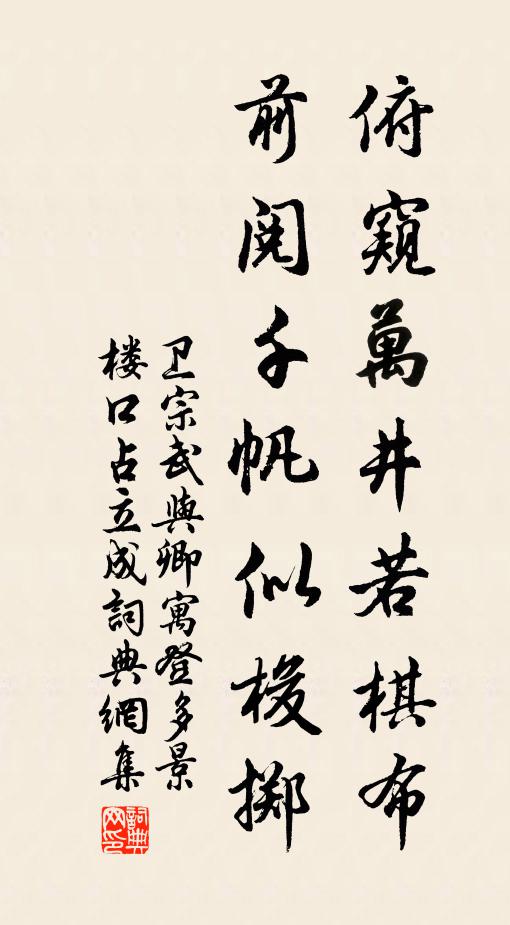 俯窥萬井若棋布
前阅千帆似梭掷
卫宗武與卿寓登多景
楼口占立成詞典網集
詞典网印